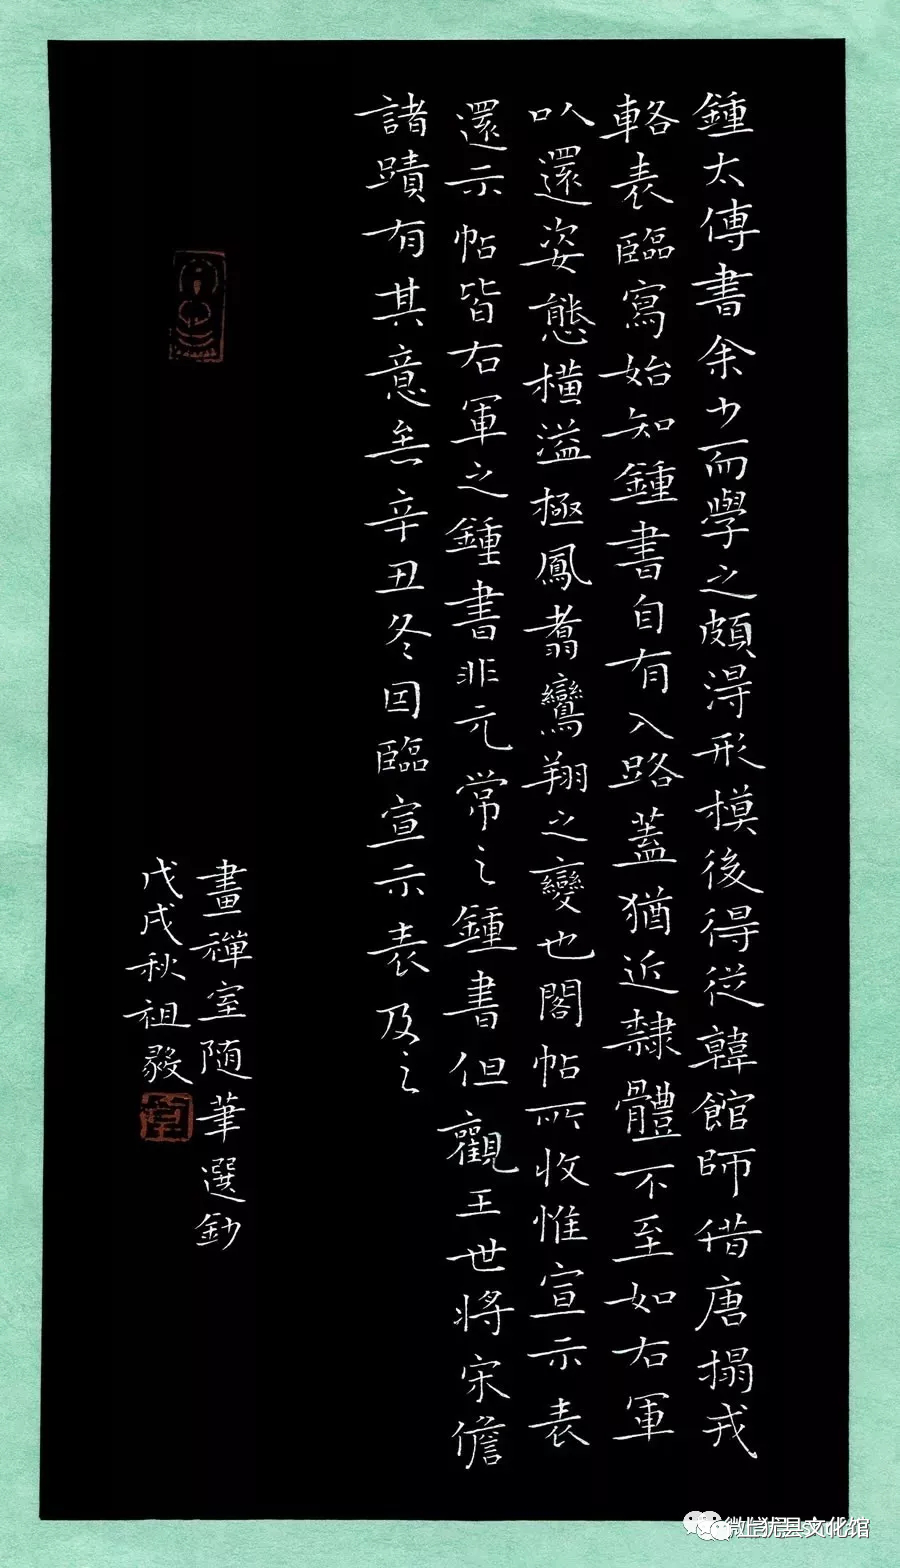 鍾太傅書余少而學之頗淂形模後得従韓館師借唐搨戎
輅表臨寫始知鍾書自有入路蓋猶近隸體不至如右軍
㕥還姿態橫溢極鳳翥鸞翔之變也閣帖所收惟宣示表
還示帖皆右軍之鍾書非元常之鍾書但觀王世將宋儋
諸蹟有其意矣辛丑冬因臨宣示表及之
畫禪室随筆選鈔
戊戌秋祖毅